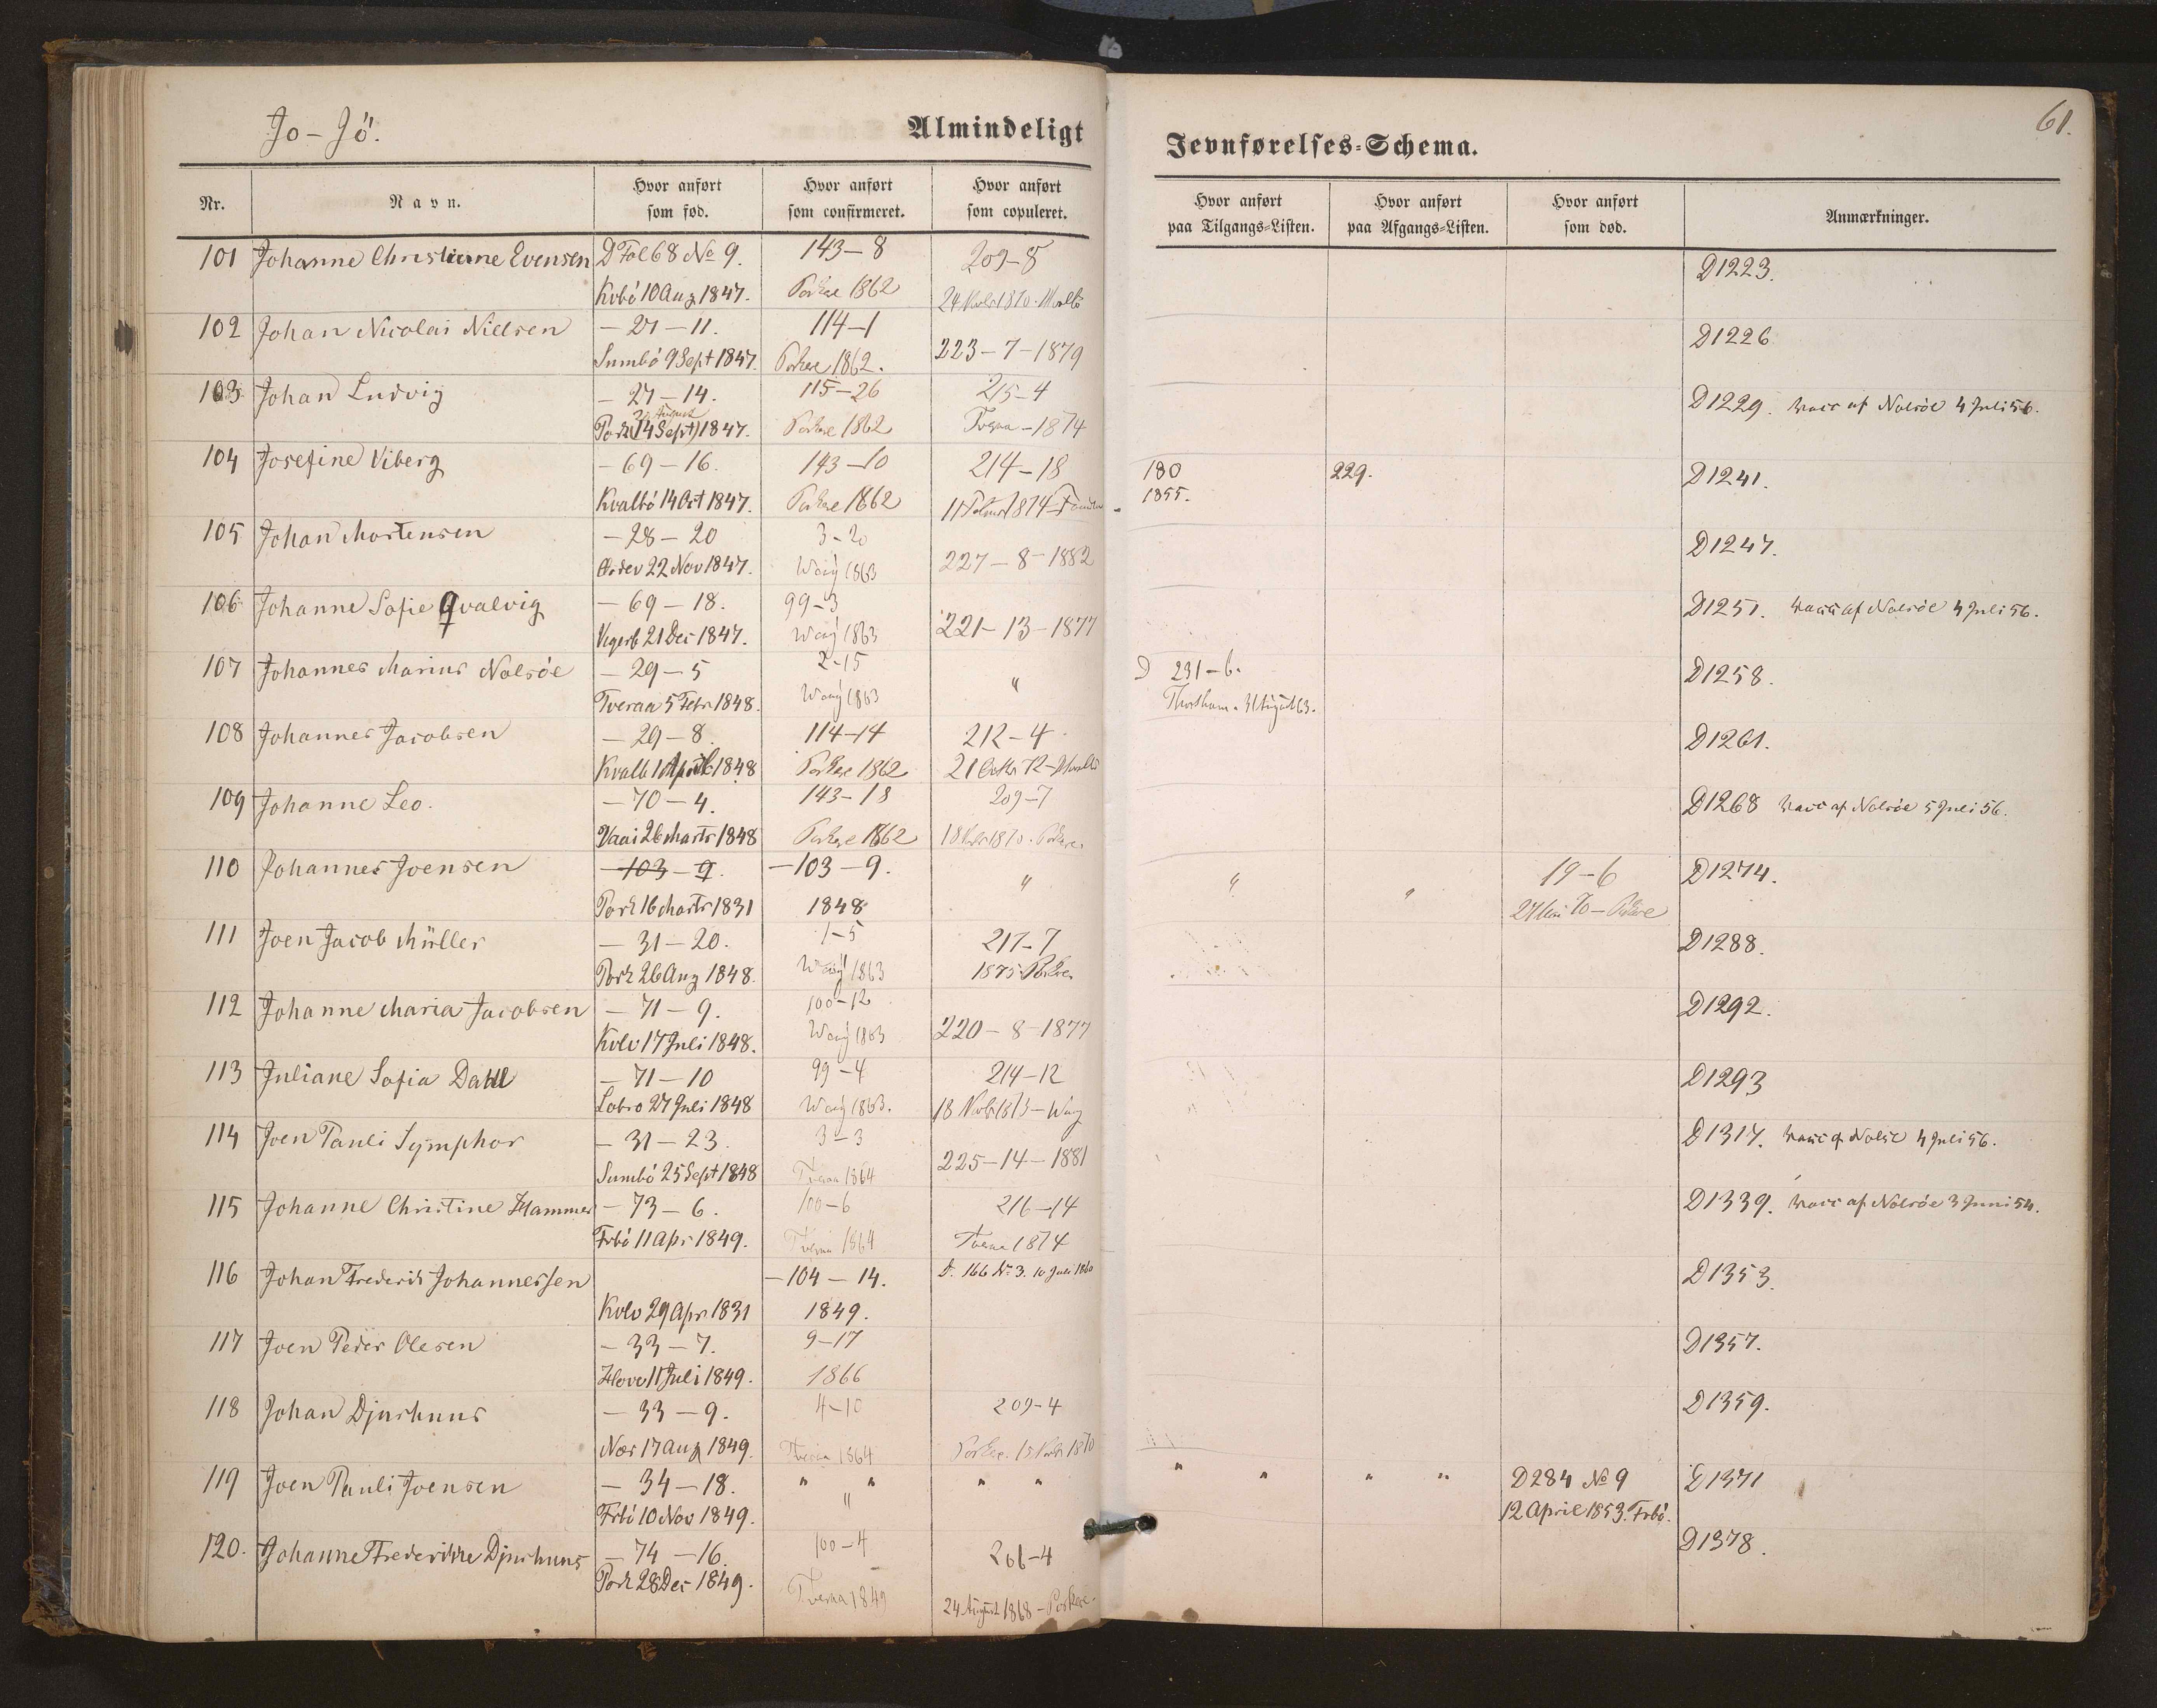 Jo-Jö.
Almindeligt
Jevnførelses-Schema.
61.
Nr.
Navn.
Hvor anført som fød.
Hvor anført som confirmeret.
Hvor anført som copuleret.
Hvor anført paa Tilgangs-Listen.
Hvor anført paa Afgangs-Listen.
Hvor anført som død.
Anmærkninger.
101 Johanne Christianne Evensen D Fol 68 No 9. 143-8 209-8 D1223.
Kvbö 10 Aug 1847. Porkere 1862
102 Johan Nicolai Nielsen — 27—11. 114-1 D1226
Sumbö 9 Sept 1847. Porkere 1862. 223-7-1879
103 Johan Ludvig — 27—14. 115-26 215-4 D1229. vacc af Nolsöe 4 Juli 56.
August
Pork (14 Sept) 1847. Porkere 1862 Tveraa-1874
104 Josefine Viberg — 69—16. 143-10 214-18 180 229. D1241.
Kvalbö 14 Oct 1847. Porkere 1862 1855.
105 Johan Mortensen — 28—20 3-20 D1247.
22 Nov 1847. Waaij 1863 227-8-1882
106 Johanne Sofie Qvalvig — 69—18. 99-3 D1251. vacc af Nolsöe 4 Juli 56.
Vagerb 21 Dec 1847. Waaij 1863 221-13-1877
107 Johannes Marius Nolsöe — 29—5 2-15 " D 231-6. D1258.
Tveraa 5 Febr 1848. Waaij 1863 Thorshavn. 31 August 63.
108 Johannes Jacobsen — 29—8. 114-14 212-4 D1261.
Kvalb 1 April 1848 Porkere 1862
109 Johanne Leo. — 70—4. 143-18 209-7 D1268 vacc af Nolsöe 5 Juli 56.
Vaai 26 Marts 1848 Porkere 1862
110 Johannes Joensen —103—9. —103—9. " " " 19-6 D1274.
Pork 16 Marts 1831 1848
111 Joen Jacob Müller — 31—20. 1-5 217-7 D1288.
Pork 26 Aug 1848. Waaij 1863 1875 Porkere
112 Johanne Maria Jacobsen — 71—9. 100-12 D1292.
Kvlv 17 Juli 1848. Waaij 1863 220-8-1877
113 Juliane Sofia Dahl — 71—10 99-4 214-12 D1293
Lobro 27 Juli 1848 Waaij 1863.
114 Joen Pauli Symphor — 31—23. 3-3 D1317. vacc af Nolsöe 4 Juli 56.
Sumbö 25 Sept 1848 Tveraa 1864 225-14-1881
115 Johanne Christine Hammer — 73—6. 100-6 216-14 D1339. vacc af Nolsöe 3 Juni 54.
Frbö 11 Apr 1849. Tveraa 1864 Tveraa 1874
116 Johan Frederik Johannessen —104—14. D. 166 No 3. 10 Juli 1860 D1353.
Kvlv 29 Apr 1831 1849.
117 Joen Peder Olesen — 33—7. 9-17 D1357.
Hove 11 Juli 1849. 1866
118 Johan Djurhuus — 33—9. 4-10 209-4 D1359.
Næs 17 Aug 1849. Tveraa 1864
119 Joen Pauli Joensen — 34—18. " " " " " " " " D284 No 9 D1371
Frbö 10 Nov 1849. " 12 April 1853. Frbö.
120. Johanne Frederikke Djurhuus — 74—16. 100-4 206-4 D1378.
Pork 28 Dec 1849. Tveraa 1849 24 August 1868 - Porkere.